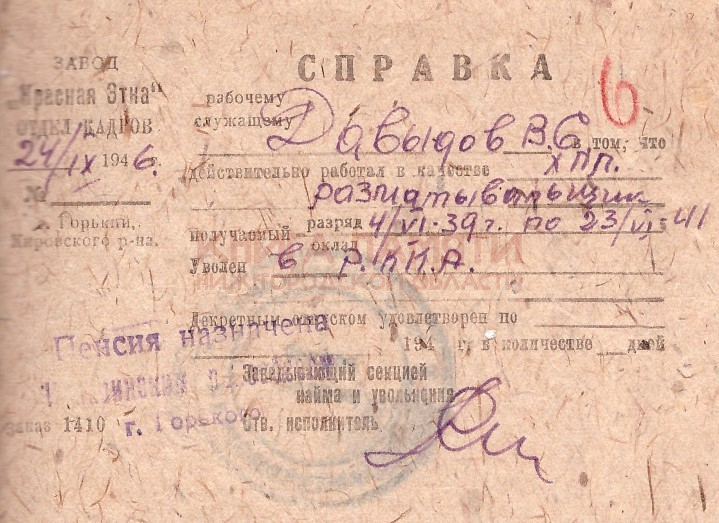 ЗАВОД
„Красная Этна"
ОТДЕЛ КАДРОВ
24/IX 1946 г.
№
г. Горький,
Кировского р-на.
СПРАВКА
6
рабочему
служащему Давыдов В.С. в том, что
действительно работал в качестве хпп.
разматывальщик
получаемый разряд оклад 4/VI-39г. по 23/VI-41
Уволен в Р.ККА.
АРХИВ ПАМЯТИ
НИЖЕГОРОДСКОЙ ОБЛАСТИ
Декретным отпуском удовлетворен по
194 г. в количестве дней
Пенсия назначена
г. Горького
Заведывающий секцией
найма и увольнения
Отв. исполнитель
Заказ 1410